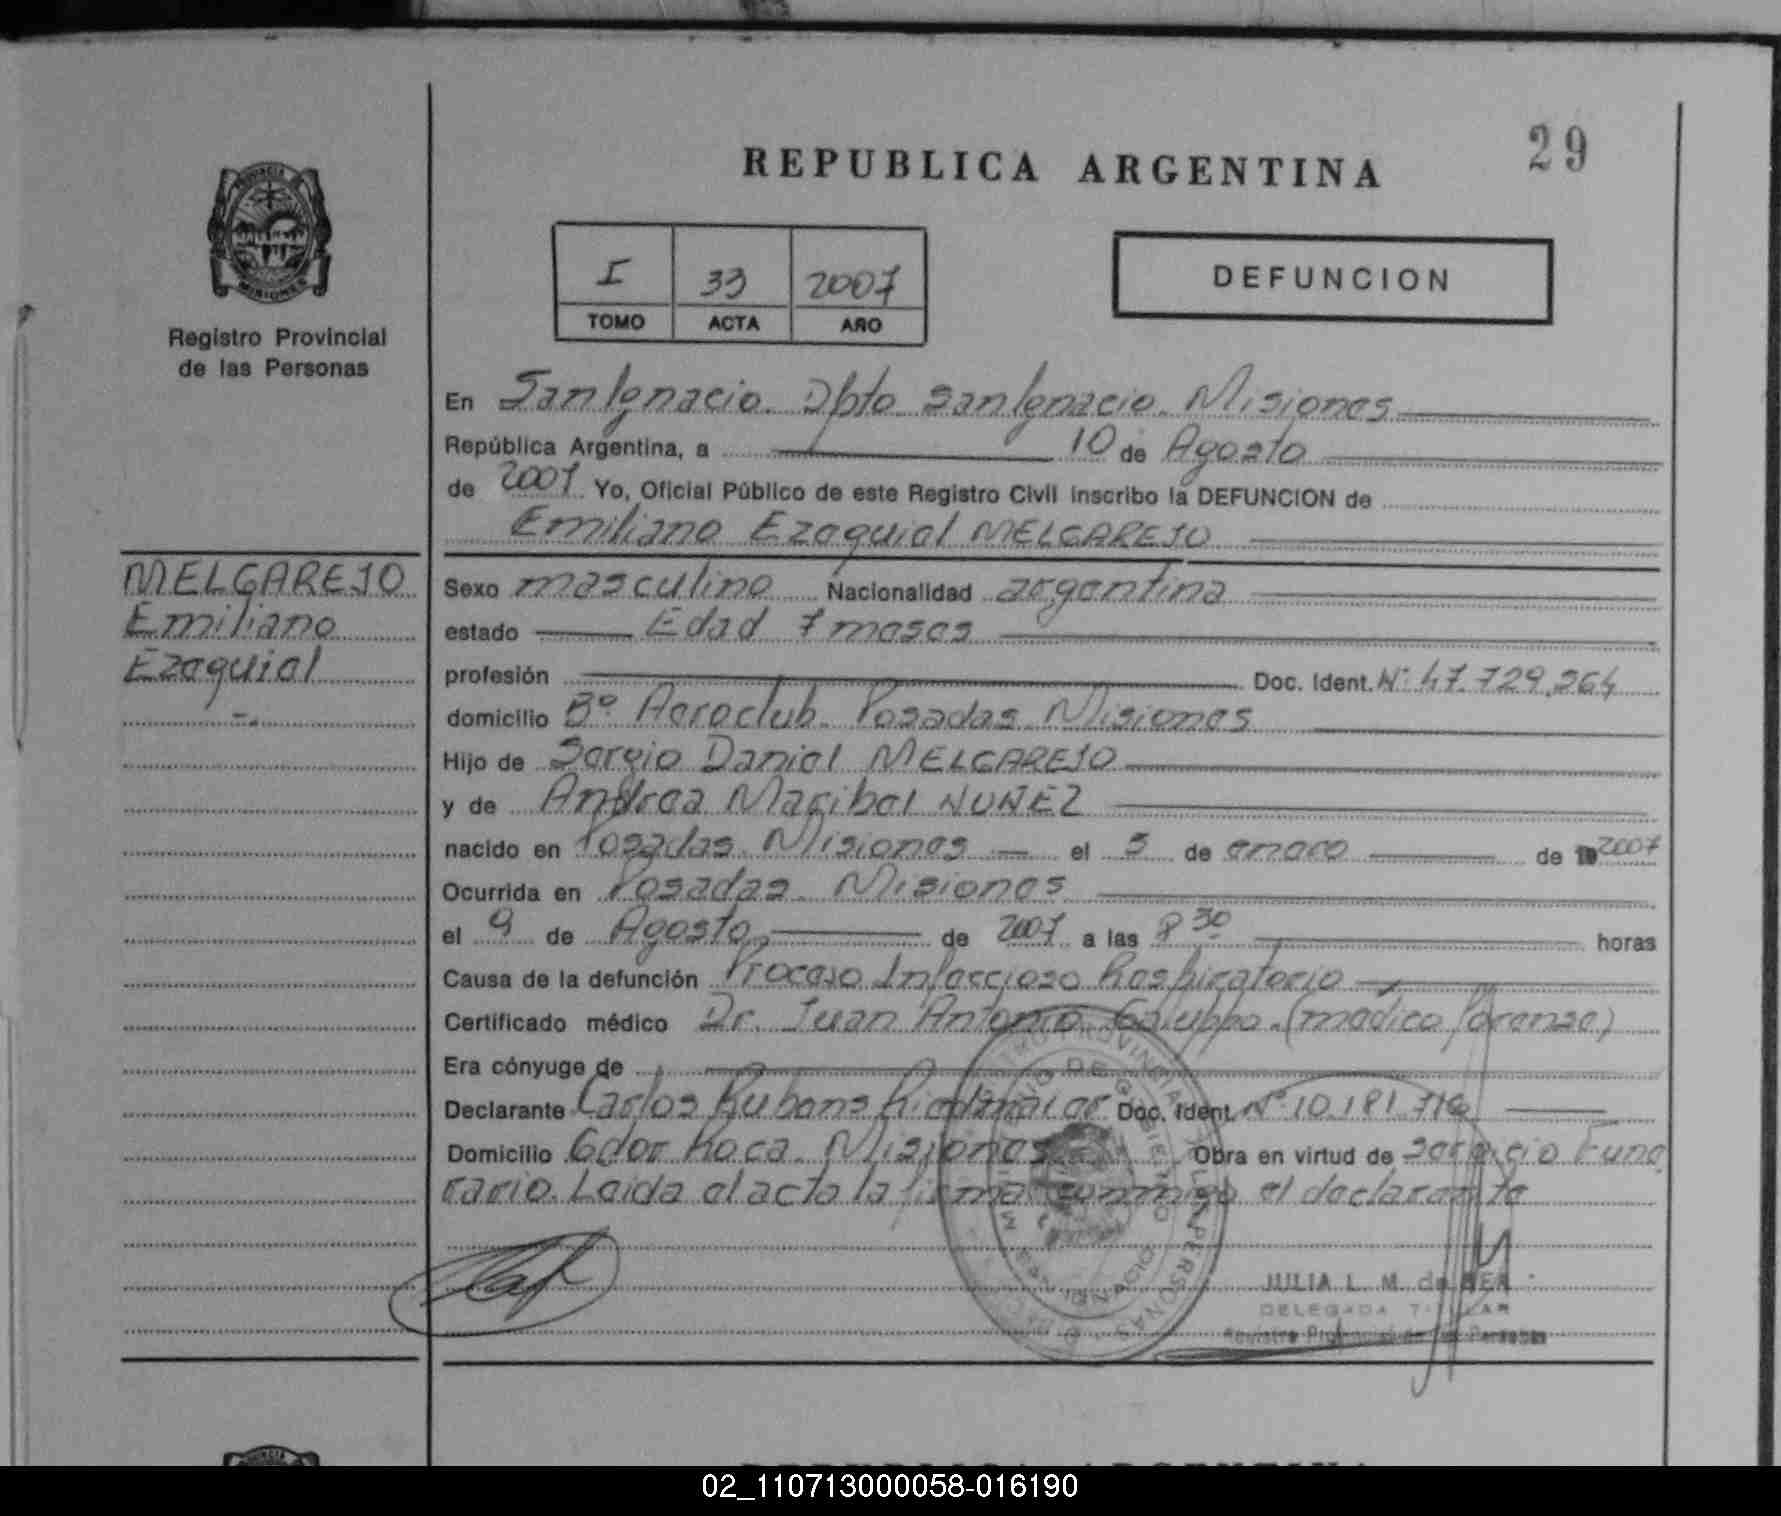 29
REPUBLICA ARGENTINA
PROVINCIA
MISIONES
Registro Provincial
de las Personas
I 33 2007
TOMO ACTA AÑO
DEFUNCION
En San Ignacio. Dpto San Ignacio. Misiones
República Argentina, a 10 de Agosto
de 2007 Yo, Oficial Público de este Registro Civil inscribo la DEFUNCION de
Emiliano Ezequiel MELGAREJO
MELGAREJO
Emiliano
Ezequiel
Sexo masculino Nacionalidad argentina
estado Edad 7 meses
profesión Doc. Ident. Nº 47.729.264
domicilio Bº Aeroclub. Posadas. Misiones
Hijo de Sergio Daniel MELGAREJO
y de Andrea Maribel NUÑEZ
nacido en Posadas. Misiones el 5 de enero de 2007
Ocurrida en Posadas. Misiones
el 9 de Agosto de 2007 a las 8 30 horas
Causa de la defunción Proceso Infeccioso Respiratorio
Certificado médico Dr. Juan Antonio Galuppo. (medico forense)
Era cónyuge de
Declarante Carlos Rubens Doc. Ident. Nº 10.181.716
Domicilio Gdor Roca. Misiones Obra en virtud de servicio Fune
rario. Leida el acta la firma conmigo el declarante
JULIA L. M. de
DELEGADA TITULAR
Registro Provincial de las Personas
02_110713000058-016190